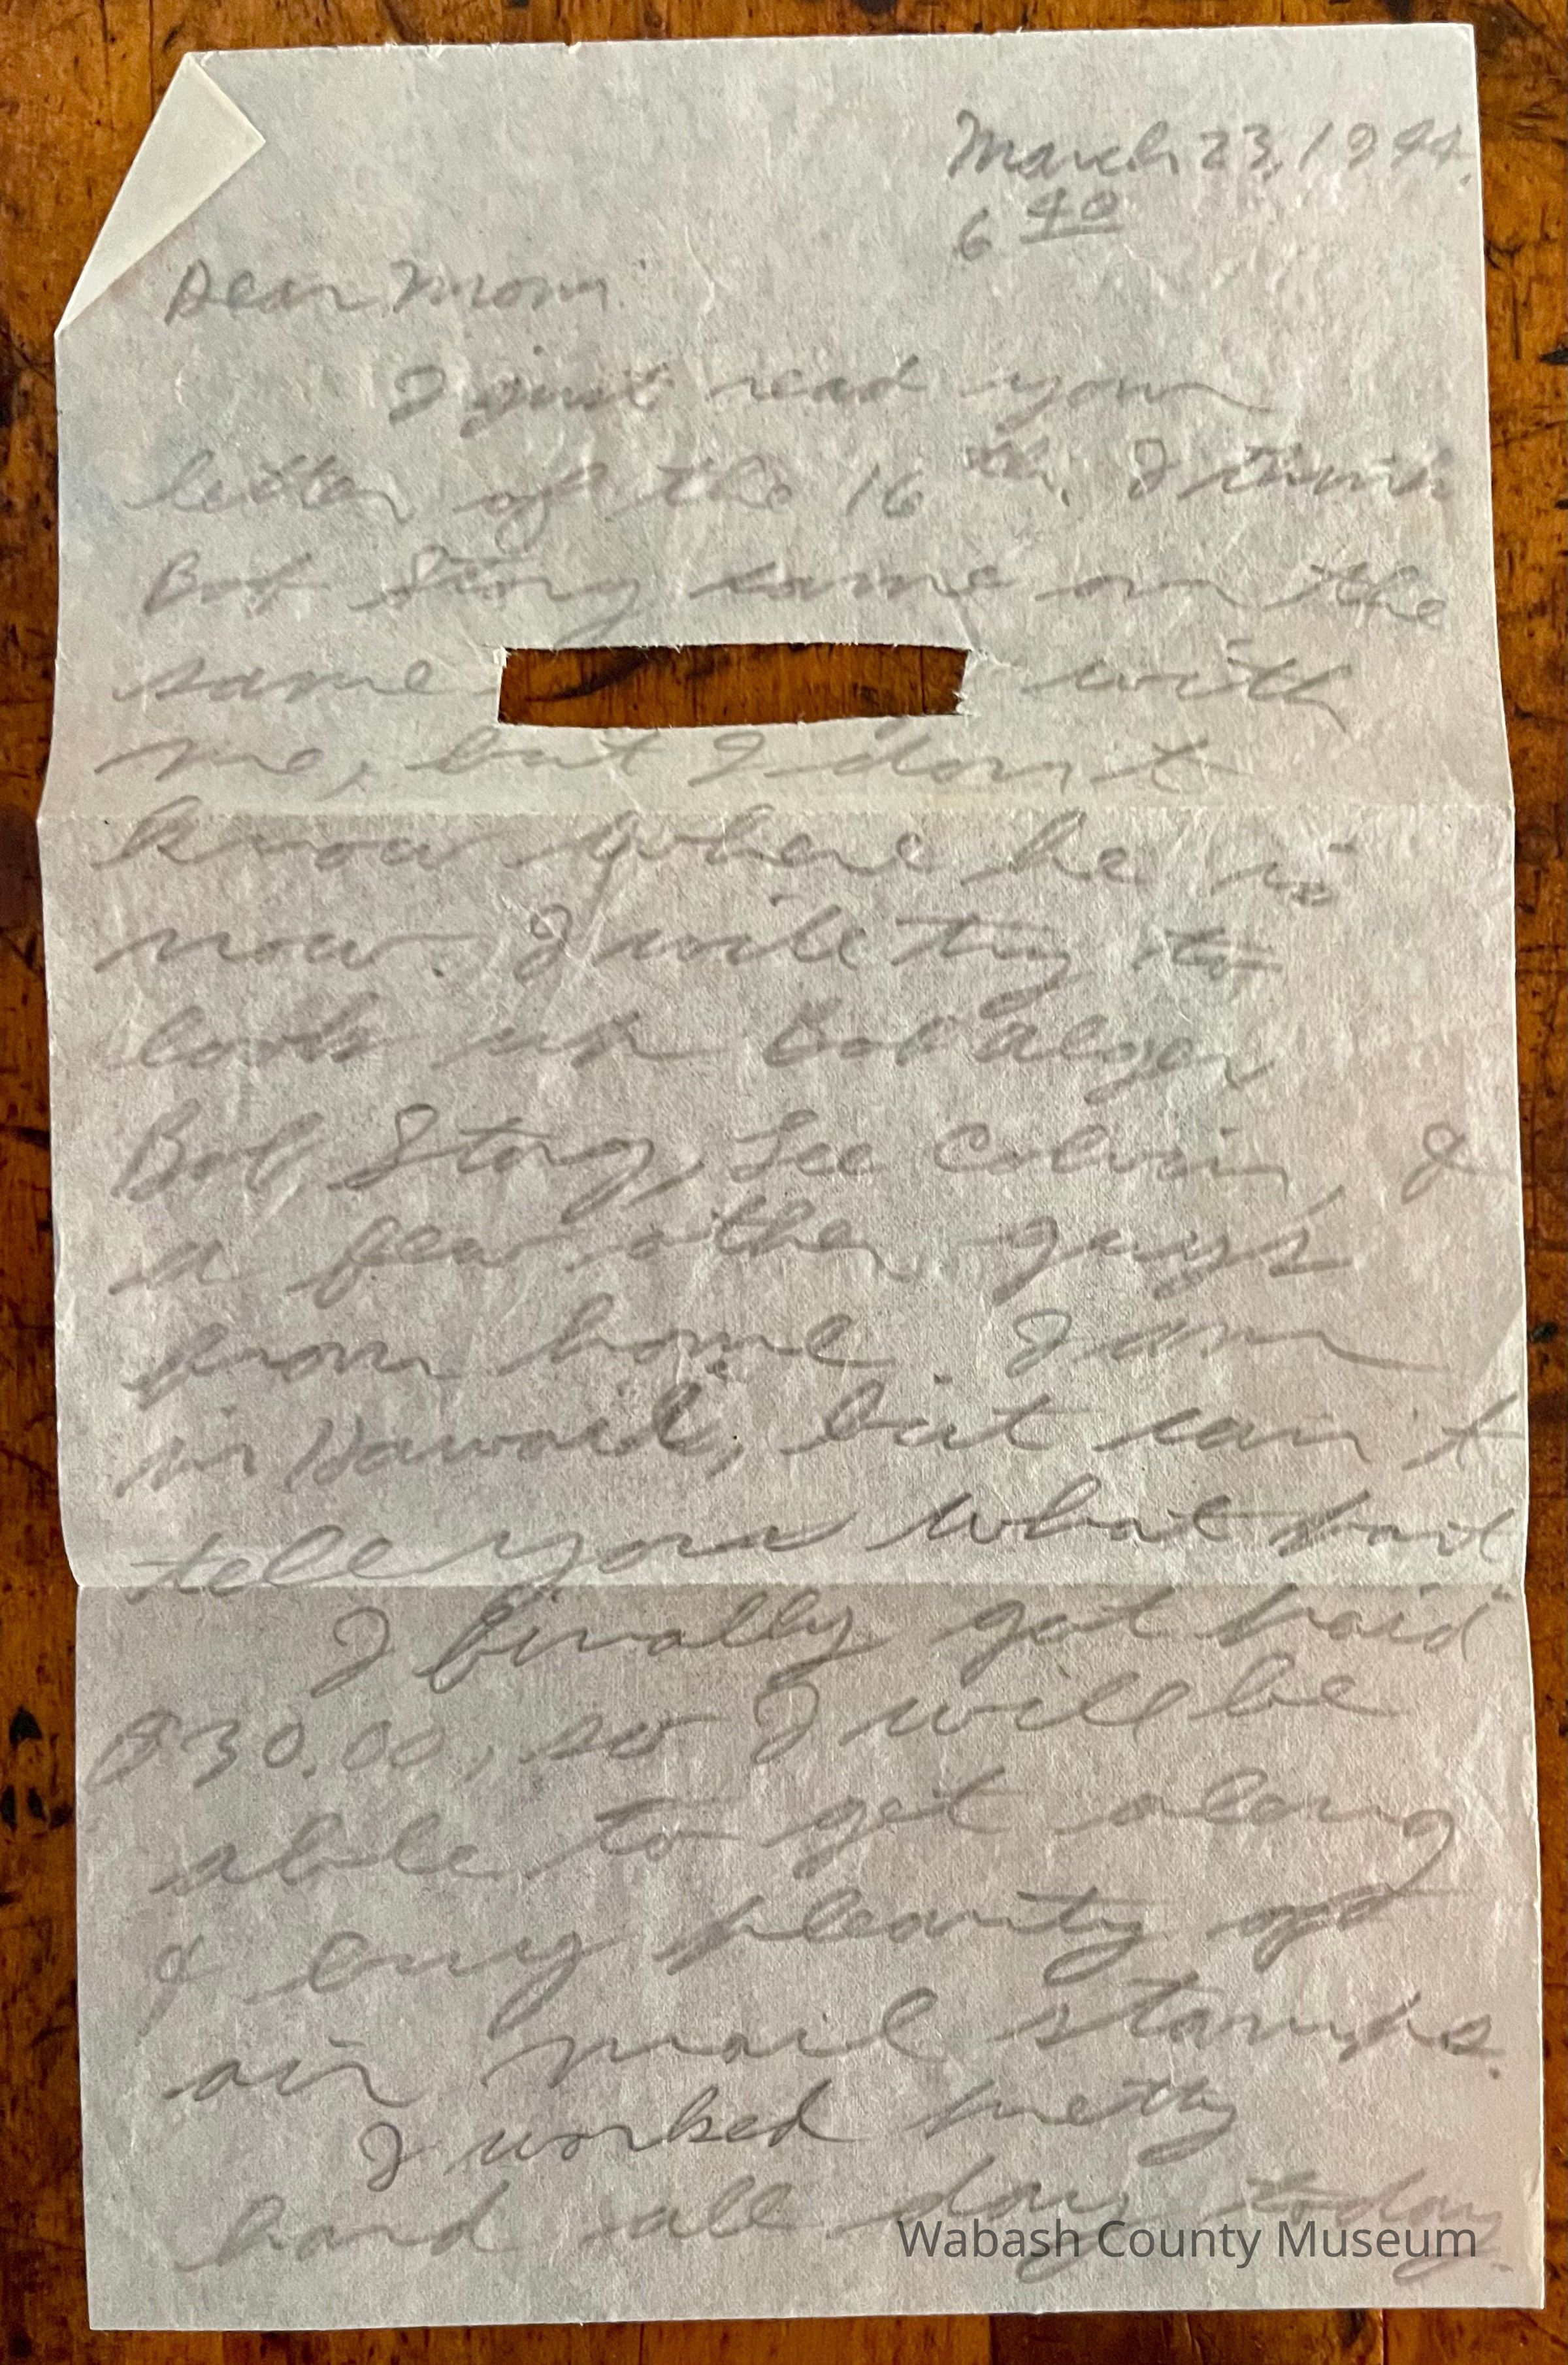 March 23, 1944.
6 40
Dear Mom
I just read your
letter of the 16th. I think
Bob Story came on the
same with
me, but I don't
know where he is
now. I will try to
look up Bob Alger
Bob, Story, Lee Colvin, &
a few other guys
from home. I am
in Hawaii, but can't
tell you what part
I finally got paid
$30.00, so I will be
able to get along
& buy plenty of
air mail stamps.
I worked pretty
hard all day today.
Wabash County Museum